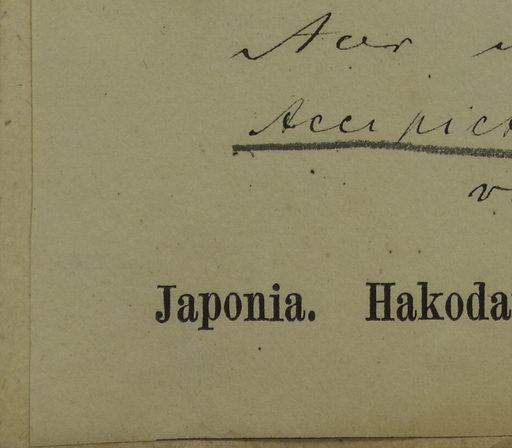 Acer
Acer pict
v
Japonia. Hakoda